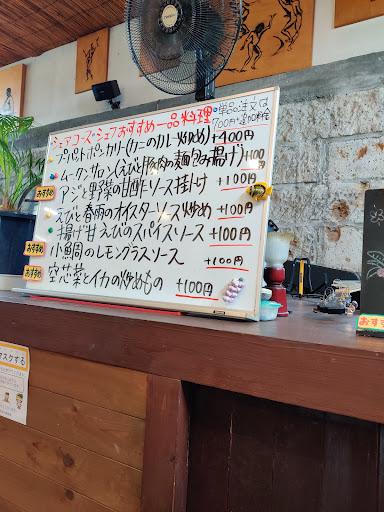 シェアコース・シェフおすすめ一品料理
※単品注文は
700円~追加料金
プパッポンカリー(カニのカレー炒め) +400円
ムーサロン(えびと豚肉の麺包み揚げ) +100円
おすすめ アジと野菜の甘酢ソース掛け +100円
えびと春雨のオイスターソース炒め +100円
揚げ甘えびのスパイスソース +100円
おすすめ 小鯛のレモングラスソース +100円
おすすめ 空芯菜とイカの炒めもの +100円
マスクする
おすすめ